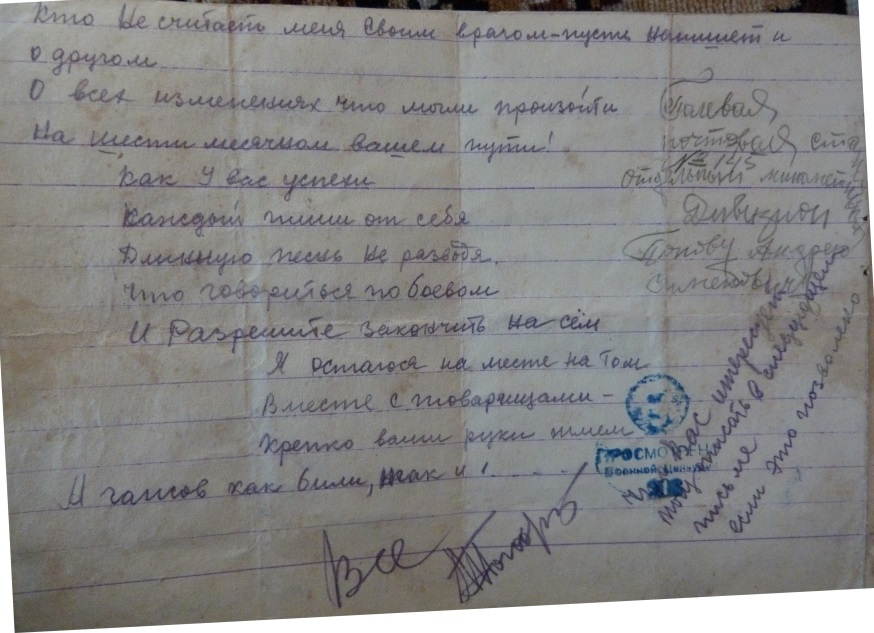 Кто Не считаеть меня Своим врагом-пусть напишет и
о другом
О всех изменениях что могли произойти
На шести месячном вашем пути!
Как у вас успехи
Каждый пиши от себя
Длинную песнь не разводя.
Что говориться по боевом
И Разрешите закончить на сём
Я остаюся на месте на том
Вместе с товарищами-
Крепко ваши руки жмем
А гансов как били, так и!......
Все
Полевая
почтовая ста
№ 145
Дивизион
Попову Андрею
ПРОСМОТРЕНО
Военной Цензурой
Что Вас интересует
могу писать в следующем
письме
если это позволено